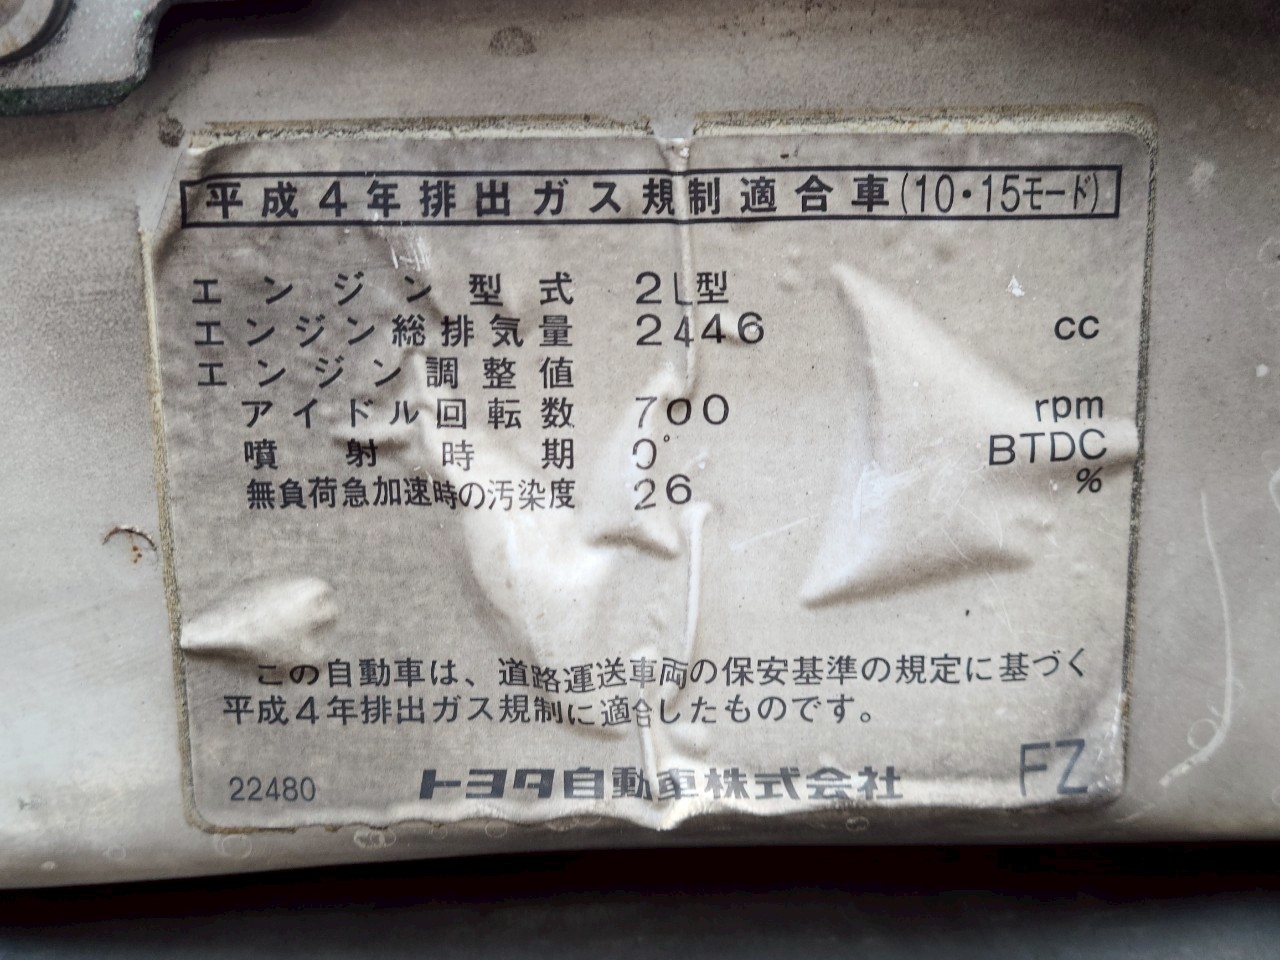 平成4年排出ガス規制適合車(10・15モード)
エンジン型式 2L型
エンジン総排気量 2446 cc
エンジン調整値
アイドル回転数 700 rpm
噴射時期 0° BTDC
無負荷急加速時の汚染度 26 %
この自動車は、道路運送車両の保安基準の規定に基づく
平成4年排出ガス規制に適合したものです。
22480 トヨタ自動車株式会社 FZ